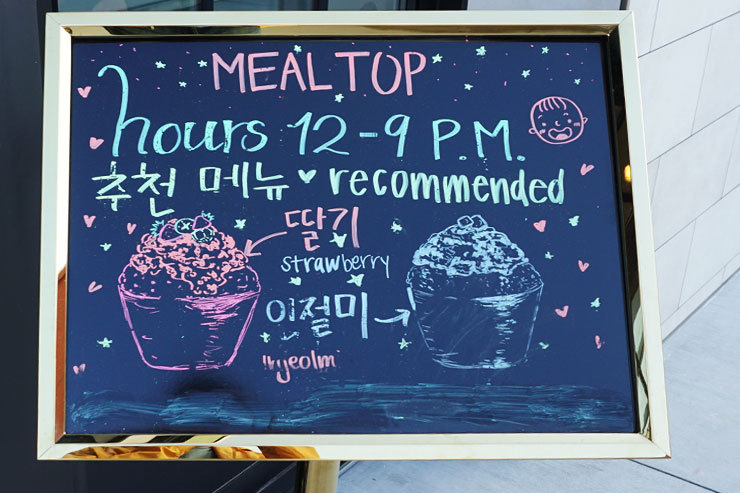 MEALTOP
hours 12-9 P.M.
추천 메뉴 ♥ recommended
딸기
strawberry
인절미